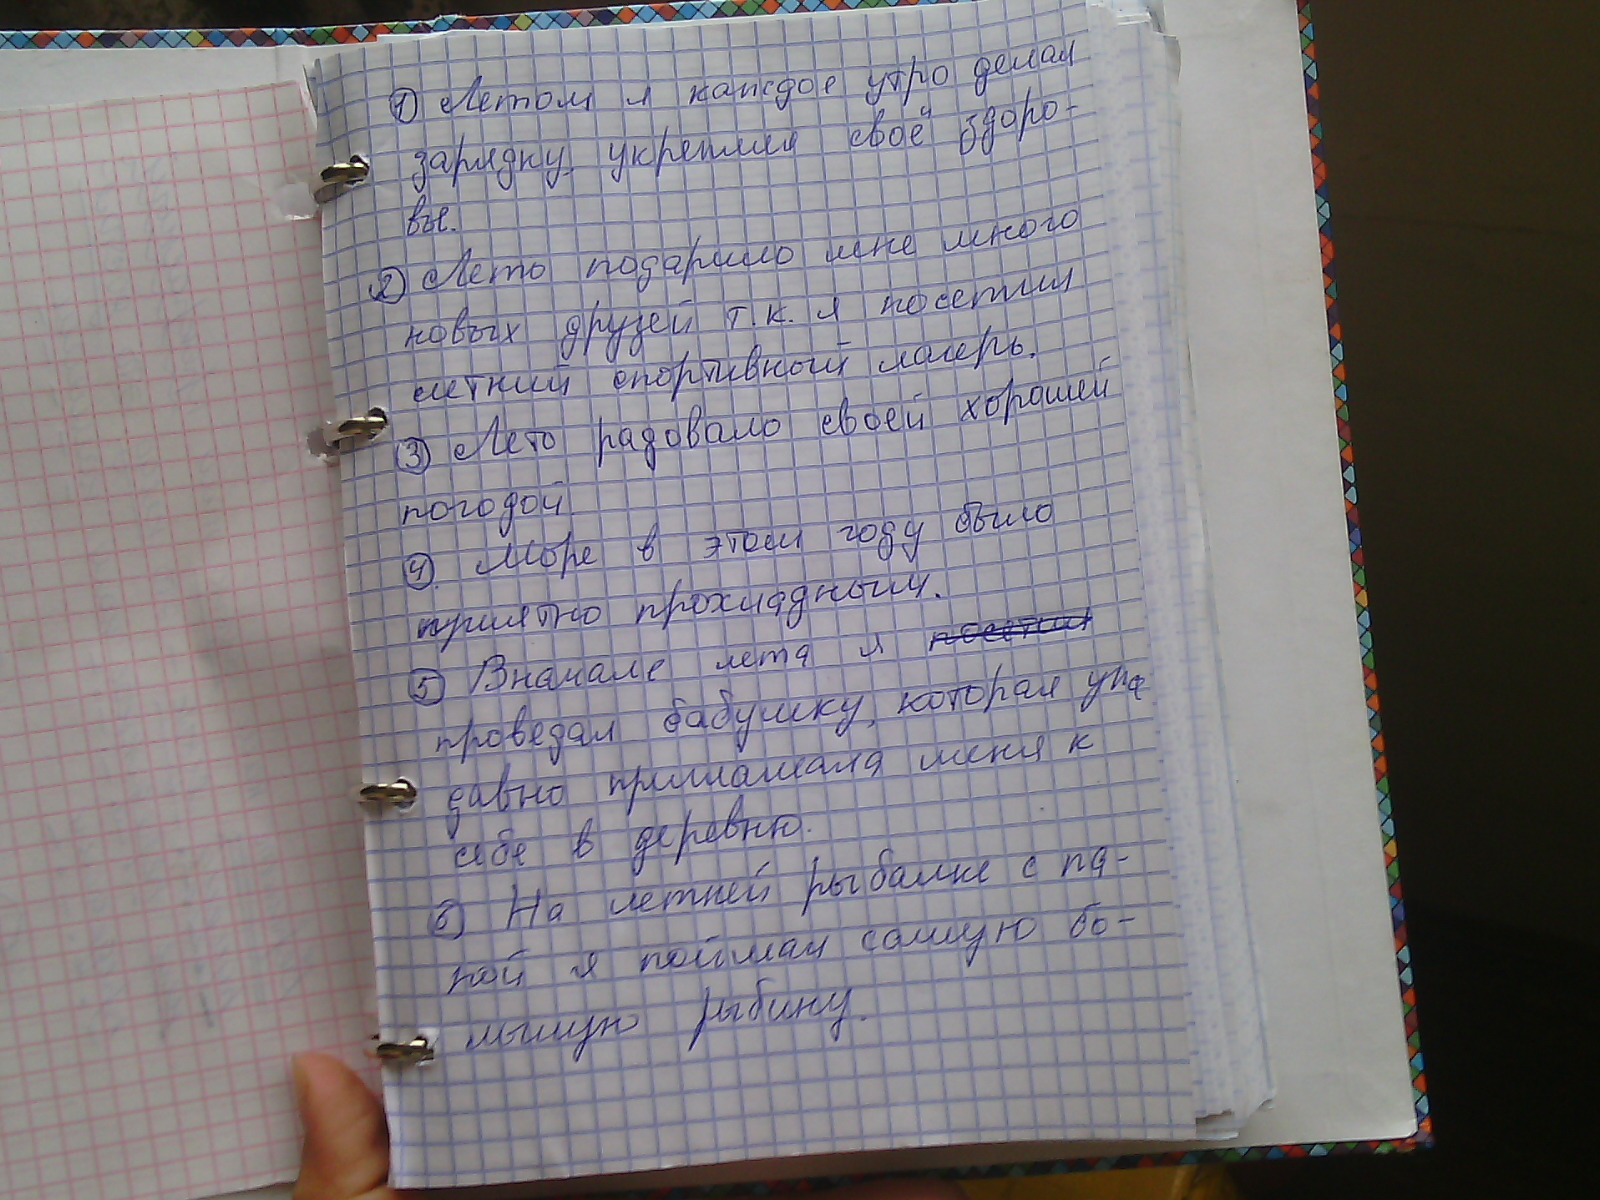 1) Летом я каждое утро делал
зарядку, укрепляя своё здоро-
вье.
2) Лето подарило мне много
новых друзей т.к. я посетил
летний спортивный лагерь.
3) Лето радовало своей хорошей
погодой.
4). Море в этом году было
приятно прохладным.
5) Вначале лета я посетил
проведал бабушку, которая уже
давно приглашала меня к
себе в деревню.
6) На летней рыбалке с па-
пой я поймал самую бо-
льшую рыбину.